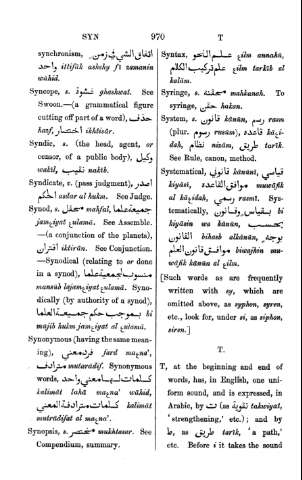 SYN 970 T
synchronism, اتفاق الشي في زمن
واحد ittifák ashshy fí zamanin
wáhid.
Syncope, s. غشوة ghashwat. See
Swoon.—(a grammatical figure
cutting off part of a word), حذف
hazf, اختصار ikhtisár.
Syndic, s. (the head, agent, or
censor, of a public body), وكيل
wakíl, نقيب nakíb.
Syndicate, v. (pass judgment), اصدر
حكم asdar al hukm. See Judge.
Synod, s. محفل mahfal, جمعية علما
jamʒíyat ʒulamá. See Assemble.
—(a conjunction of the planets),
اقتران iktirán. See Conjunction.
—Synodical (relating to or done
in a synod), منسوب لجمعية علما
mansúb lajamʒíyat ʒulamá. Syno-
dically (by authority of a synod),
بموجب حكم جمعية العلما bi
májib hukm jamʒíyat al ʒulamá.
Synonymous (having the same mean-
ing), فرد معني fard maʒna',
مترادف mutarádif. Synonymous
words, كلمات لها معني واحد
kalimát lahá maʒna' wáhid,
كلمات مترادفة المعني kalimát
mutrádifat al maʒna'.
Synopsis, s. مختصر mukhtasar. See
Compendium, summary.
Syntax, علم النحو ʒilm annahú,
علم تركيب الكلام ʒilm tarkíb al
kalám.
Syringe, s. محقنة mahkanah. To
syringe, حقن hakan.
System, s. قانون kánún, رسم rasm,
(plur. رسوم rusúm), قاعدة káʒi-
dah, نظام nizám, طريق taríḳ.
See Rule, canon, method.
Systematical, قانوني kánúní, قياسي
kiyásí, موافق القاعدة muwáfik
al káʒidah, رسمي rasmí. Sys-
tematically, بقياس وقانون bi
kiyásin wa kánún, بحسب
القانون bihasb alkánún, بوجه
موافق قانون العلم biwajhin mu-
wáfik kánún al ʒilm.
[Such words as are frequently
written with sy, which are
omitted above, as syphon, syren,
etc., look for, under si, as siphon,
siren.]
T.
T, at the beginning and end of
words, has, in English, one uni-
form sound, and is expressed, in
Arabic, by ت (as تقوية takwiyat,
'strengthening,' etc.); and by
ط, as طريق taríḳ, 'a path,'
etc. Before i it takes the sound